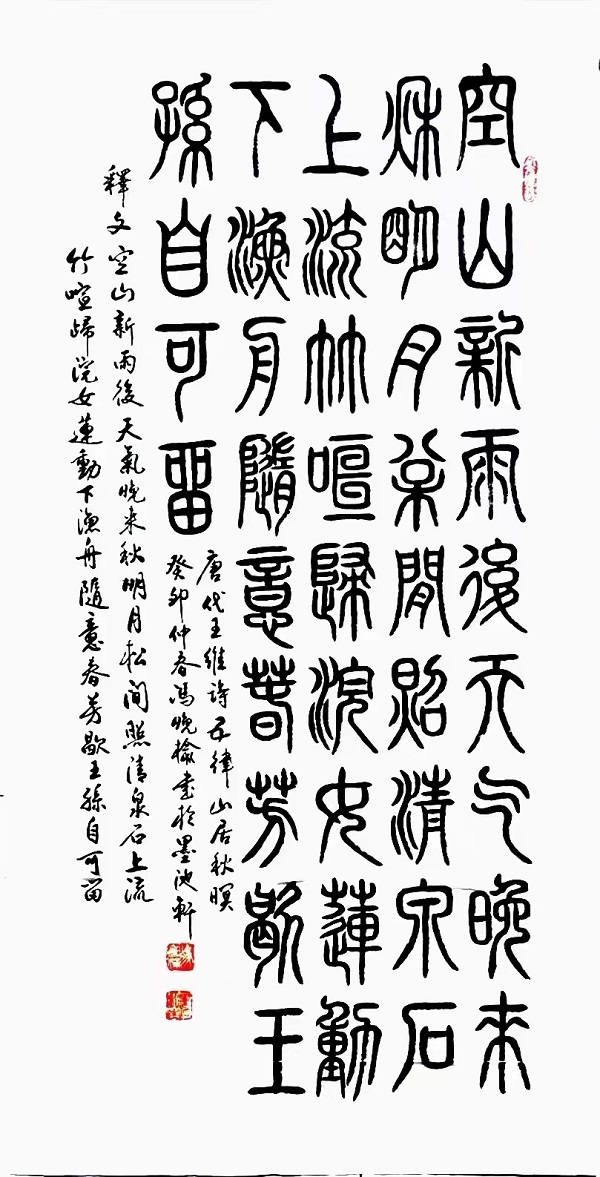 空山新雨後天气晚來
秋明月松閒照清泉石
上流竹喧歸浣女蓮動
下漁舟隨意春芳歇王
孫自可留
唐代王維詩五律山居秋暝
癸卯仲春馮晚書於墨池軒
釋文空山新雨後天氣晚来秋明月松间照清泉石上流
竹喧歸浣女蓮動下漁舟隨意春芳歇王孫自可留